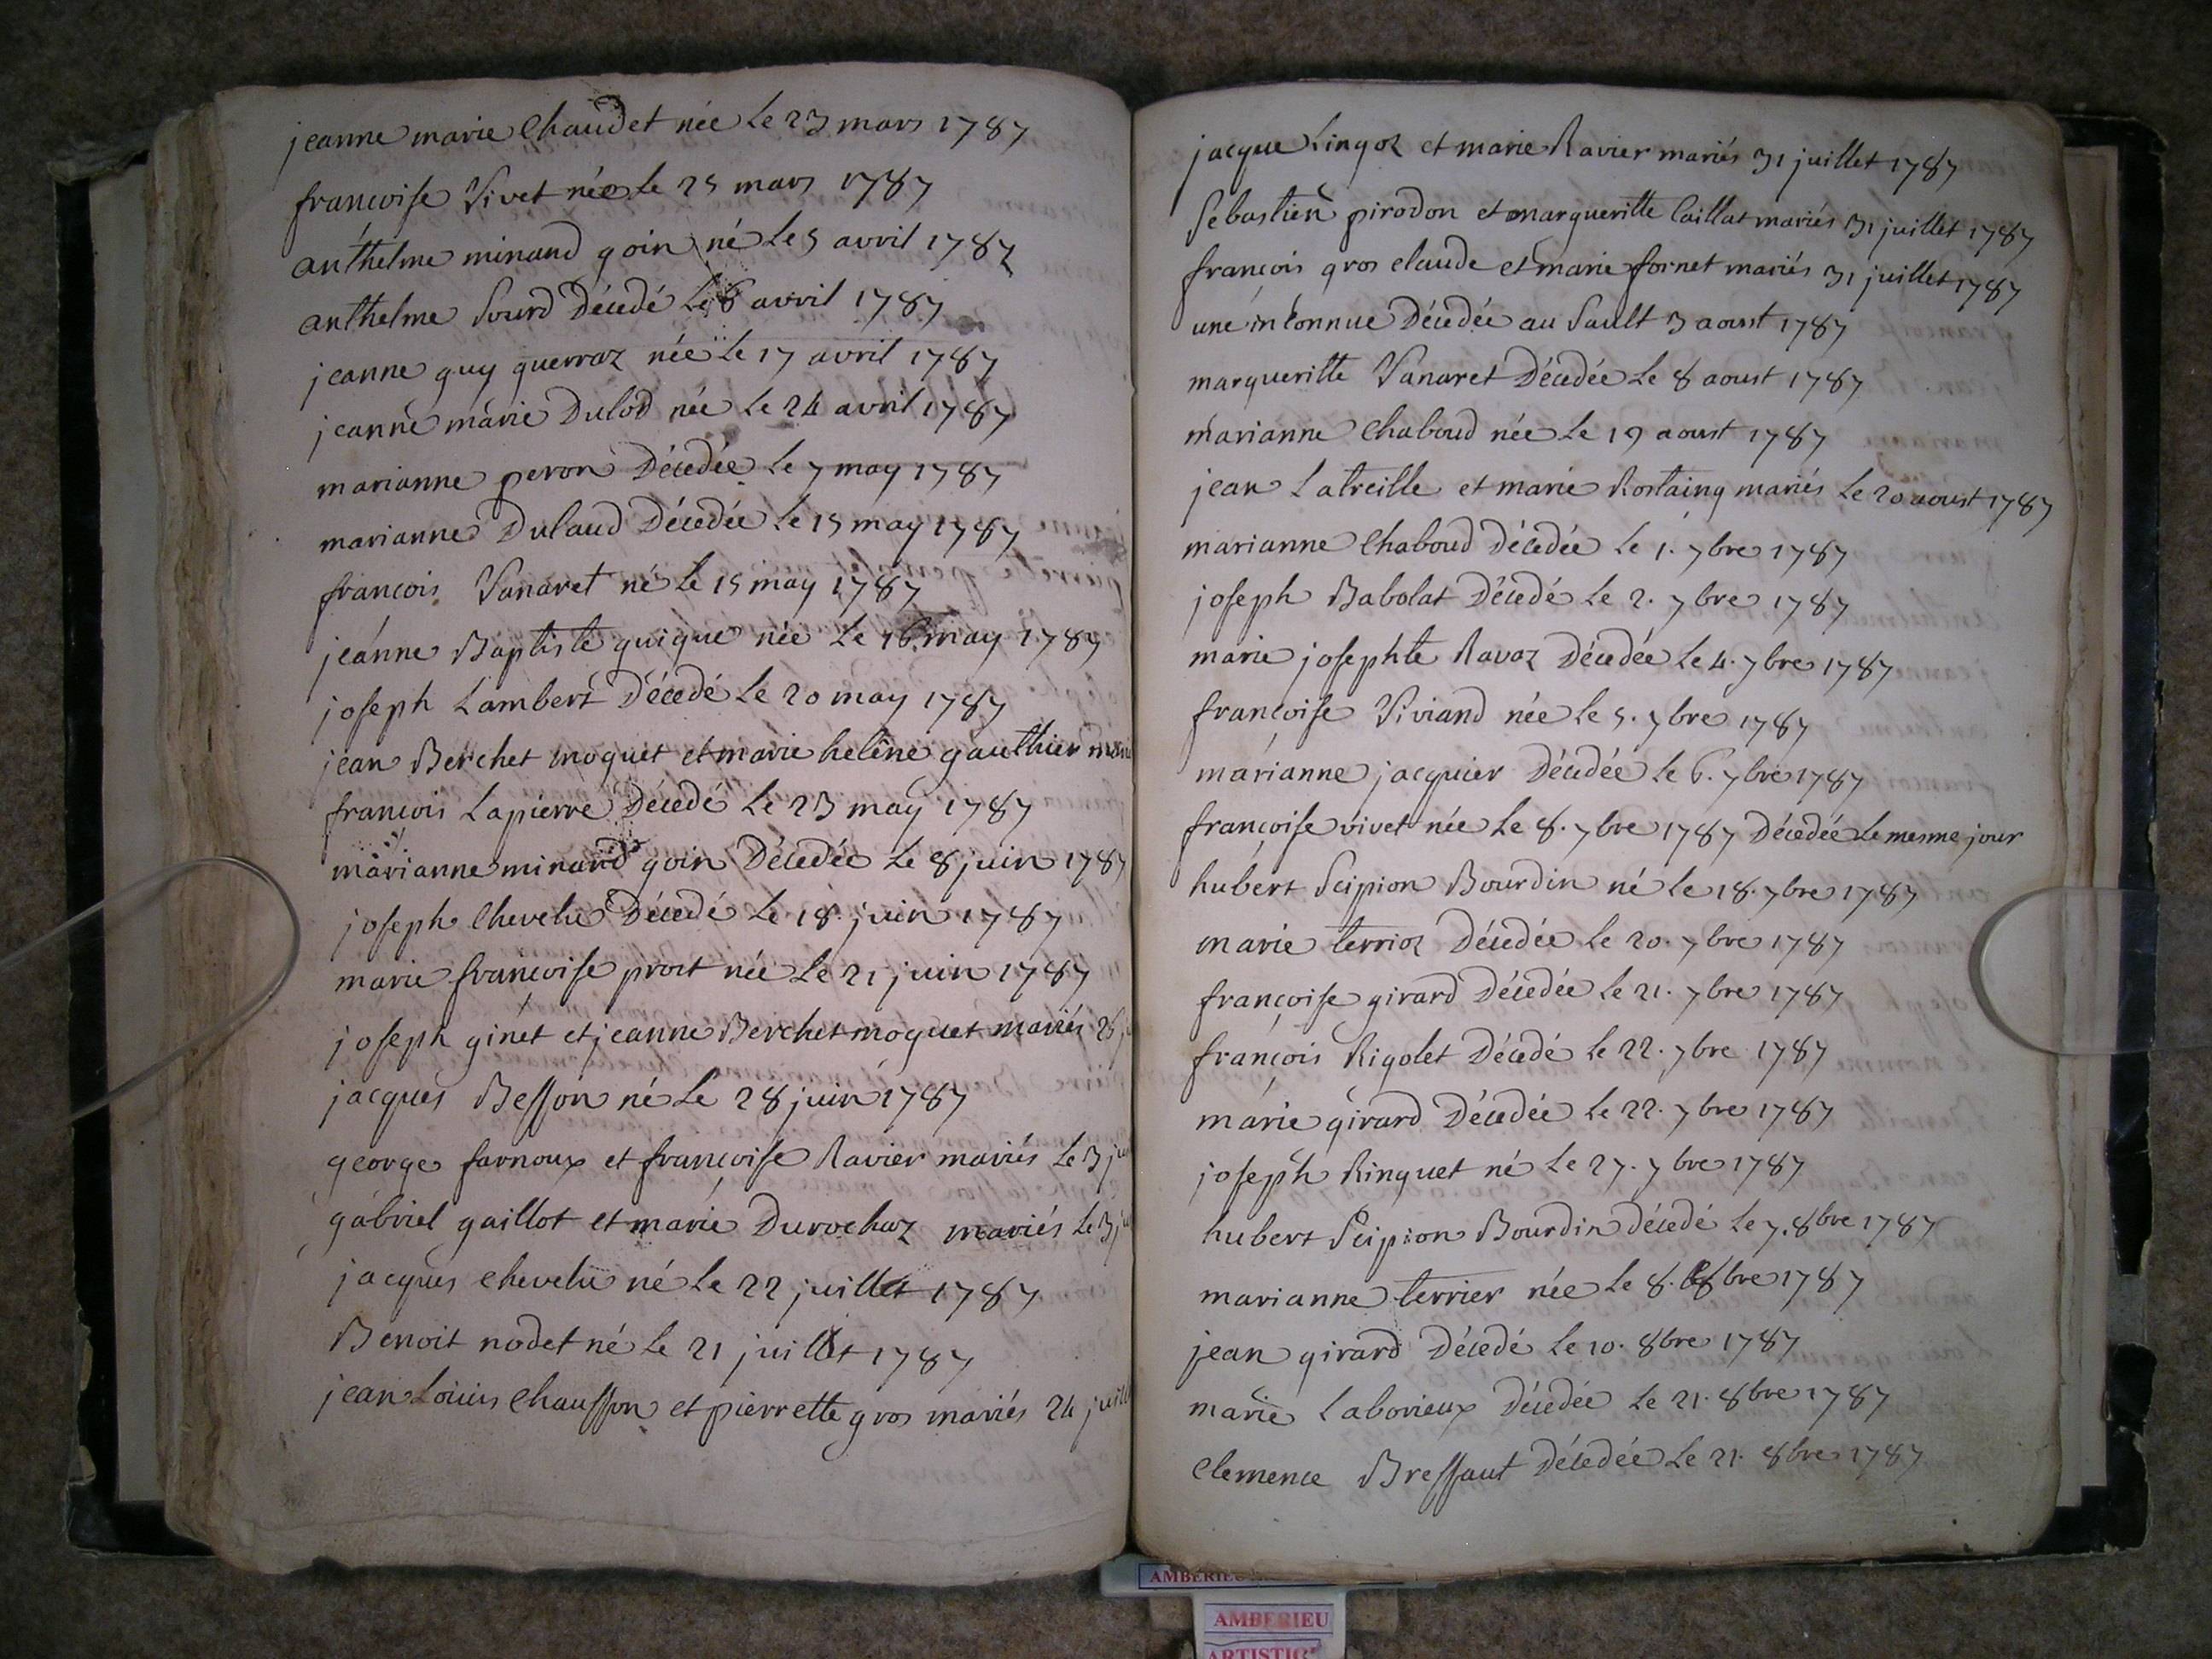 jeanne marie Chaudet née Le 23 mars 1787
françoise Vivet née le 25 mars 1787
anthelme minand goin né Le 5 avril 1787
anthelme Sourd Décédé Le 6 avril 1787
jeanne guy guerraz née Le 17 avril 1787
jeanne marie Dulod née Le 24 avril 1787
marianne peron Décedée Le 7 may 1787
marianne Dulaud Décedée Le 15 may 1787
françois Vanaret né Le 15 may 1787
jeanne Baptiste guigue née Le 16 may 1787
joseph Lambert Décedé Le 20 may 1787
jean Berchet moquet et marie helêne gauthier
françois Lapierre Décedé Le 23 may 1787
marianne minand goin Décedée Le 8 juin 1787
joseph Chevelu Décedé Le 18. juin 1787
marie françoise prost née Le 21 juin 1787
joseph ginet et jeanne Berchet moquet mariés
jacques Besson né Le 28 juin 1787
george farnoux et françoise Ravier mariés Le 3
gabriel gaillot et marie Durochaz mariés Le 3
jacques Chevelu né Le 22 juillet 1787
Benoit nodet né Le 21 juillet 1787
jean Louis Chausson et pierrette gros mariés 24
jacque Lingoz et marie Ravier mariés 31 juillet 1787
Sebastien pirodon et marguerite Caillat mariés 31 juillet 1787
françois gros claude et marie fornet mariés 31 juillet 1787
une inconnue Décedée au Sault 3 aoust 1787
marguerite Vanaret Décedée Le 8 aoust 1787
marianne Chaboud née Le 19 aoust 1787
jean Latreille et marie Rostaing mariés Le 20 aoust 1787
marianne Chaboud Décedée Le 1. 7bre 1787
joseph Babolat Décedé Le 2. 7bre 1787
marie josephte Ravoz Décedée Le 4. 7bre 1787
françoise Viviand née Le 5. 7bre 1787
marianne jacquier Décedée Le 6. 7bre 1787
françoise vivet née Le 8. 7bre 1787 Décedée Le mesme jour
hubert Scipion Bourdin né Le 18. 7bre 1787
marie terrioz Décedée Le 20. 7bre 1787
françoise girard Décedée Le 21. 7bre 1787
françois Rigolet Décedé Le 22. 7bre 1787
marie girard Décedée Le 22. 7bre 1787
joseph Ringuet né Le 27. 7bre 1787
hubert Scipion Bourdin Décedé Le 7. 8bre 1787
marianne terrier née Le 8. 8bre 1787
jean girard Décedé Le 10. 8bre 1787
marie Laborieux Décedée Le 21. 8bre 1787
Clemence Bressaut Décedée Le 21. 8bre 1787
AMBERIEU
ARTISTIC